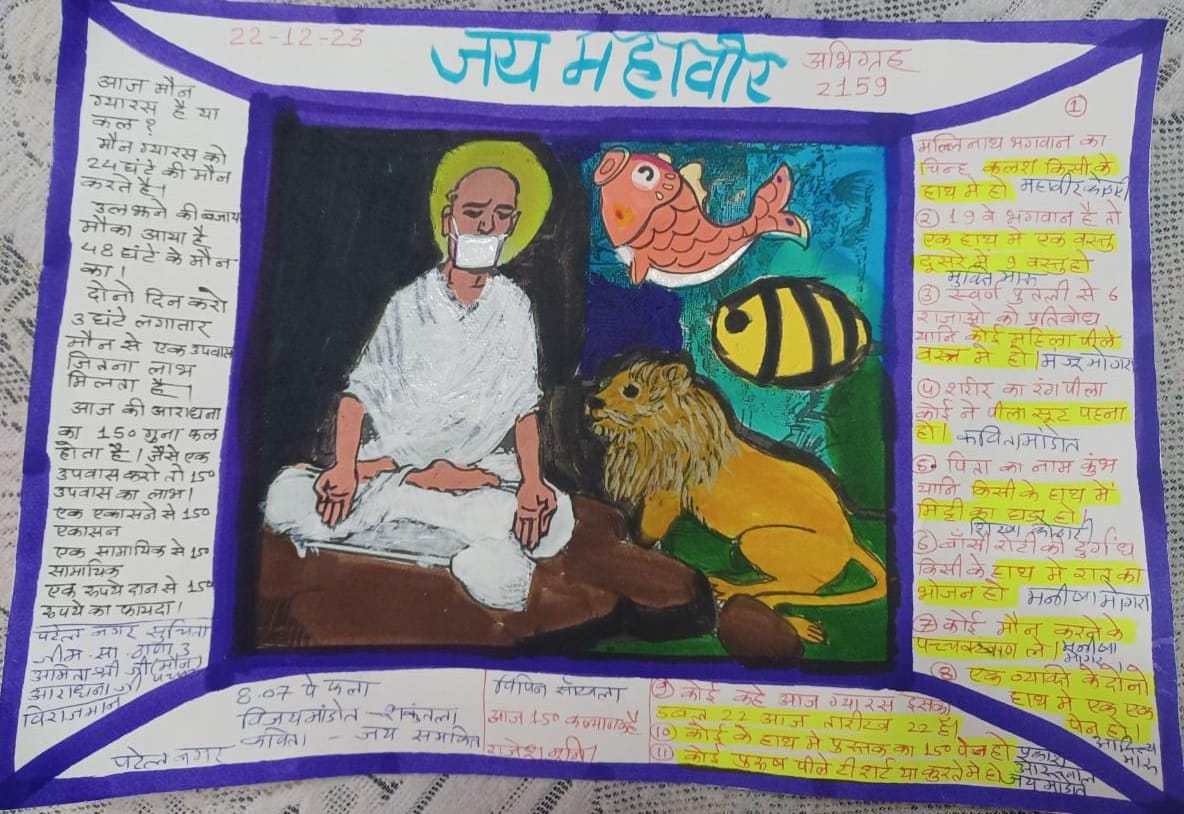 22-12-23
जय महावीर
अभिग्रह
2159
आज मौन
ग्यारस है या
कल ?
मौन ग्यारस को
24 घंटे की मौन
करते है।
उलझने की बजाय
मौका आया है
48 घंटे के मौन
का।
दोनो दिन करो
3 घंटे लगातार
मौन से एक उपवास
जितना लाभ
मिलता है।
आज की आराधना
का 150 गुना फल
होता है। जैसे एक
उपवास करो तो 150
उपवास का लाभ।
एक एकासने से 150
एकासन
एक सामायिक से 150
सामायिक
एक रुपये दान से 150
रुपये का फायदा।
पटेल नगर सुचिता
जी म.सा. ठाणा 3
अमिता श्री जी (मौन)
आराधना जी
विराजमान
①
मल्लिनाथ भगवान का
चिन्ह कलश किसी के
हाथ मे हो महावीर कोठारी
② 19 वे भगवान है तो
एक हाथ मे एक वस्तु
दूसरे मे 9 वस्तु हो
मुक्ति मारू
③ स्वर्ण पुतली से 6
राजाओ को प्रतिबोध
यानि कोई महिला पीले
वस्त्र मे हो। मंजू मोगरा
④ शरीर का रंग पीला
कोई ने पीला सूट पहना
हो। कविता मांडोत
⑤ पिता का नाम कुंभ
यानि किसी के हाथ में
मिट्टी का घड़ा हो।
शिखा कोठारी
⑥ बाँसी रोटी की दुर्गंध
किसी के हाथ मे रात का
भोजन हो मनीषा मोगरा
⑦ कोई मौन करने के
पच्चक्खाण ले। मनीषा
मोगरा
⑧ एक व्यक्ति के दोनो
हाथ मे एक एक
पेन हो।
आदित्य
मारू
8.07 पे फला
विजय मांडोत - शकुंतला
कविता - जय समकित
पटेल नगर
विपिन साँखला
आज 150 कल्याणक है
राजेश मुनि
⑨ कोई कहे आज ग्यारस इसका
डबल 22 आज तारीख 22 है।
⑩ कोई के हाथ मे पुस्तक का 150 पेज हो प्रकाश
⑪ कोई पुरुष पीले टी शर्ट या कुरते मे हो
जय मांडोत